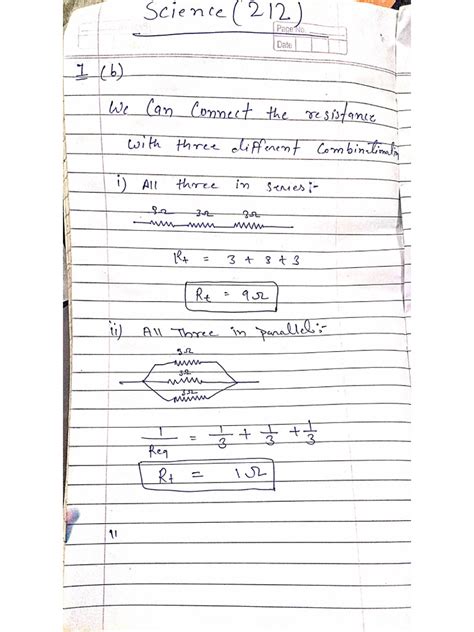 Science (212)
Page No.
Date
1 (b)
We Can Connect the resistance
with three different Combination
i) All three in series:-
3Ω 3Ω 3Ω
Rt = 3 + 3 + 3
Rt = 9Ω
ii) All Three in parallel:-
3Ω
3Ω
3Ω
1/Req = 1/3 + 1/3 + 1/3
Rt = 1Ω